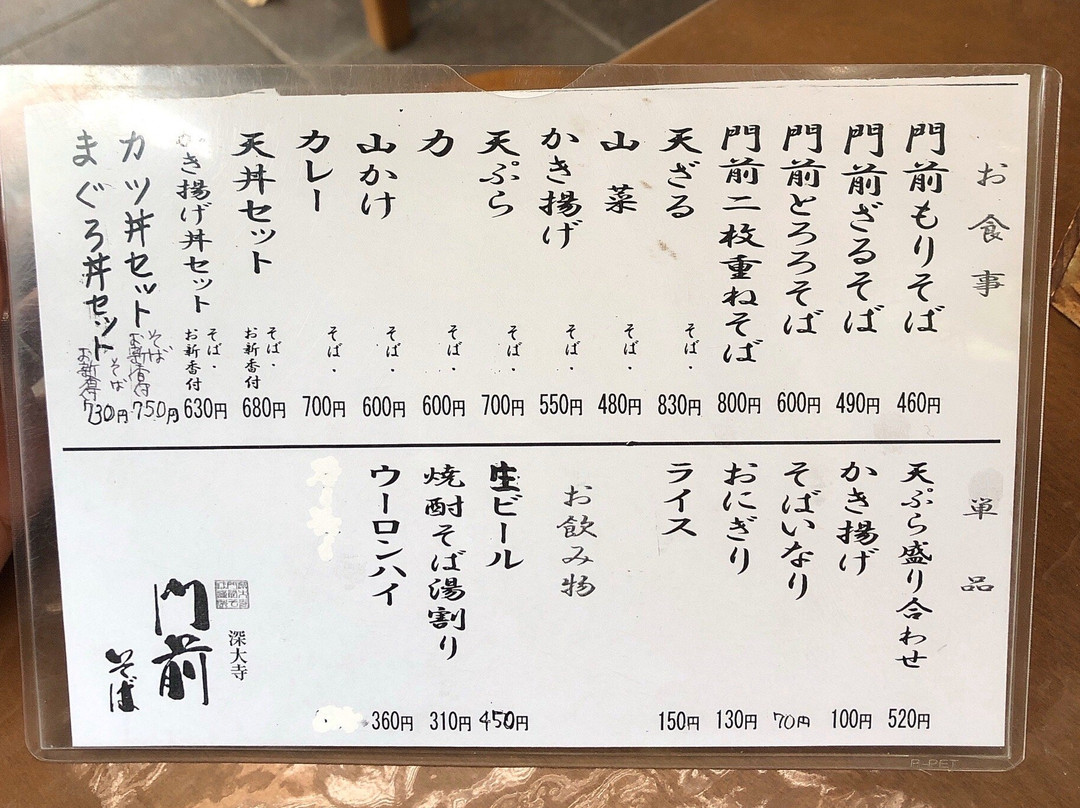 お食事
門前もりそば 460円
門前ざるそば 490円
門前とろろそば 600円
門前二枚重ねそば 800円
天ざる そば・ 830円
山菜 そば・ 480円
かき揚げ そば・ 550円
天ぷら そば・ 700円
力 そば・ 600円
山かけ そば・ 600円
カレー そば・ 700円
天丼セット そば・お新香付 680円
かき揚げ丼セット そば・お新香付 630円
カツ丼セット そば お新香付 750円
まぐろ丼セット そば お新香付 730円
単品
天ぷら盛り合わせ 520円
かき揚げ 100円
そばいなり 70円
おにぎり 130円
ライス 150円
お飲み物
生ビール 450円
焼酎そば湯割り 310円
ウーロンハイ 360円
深大寺
門前
そば
P-PET